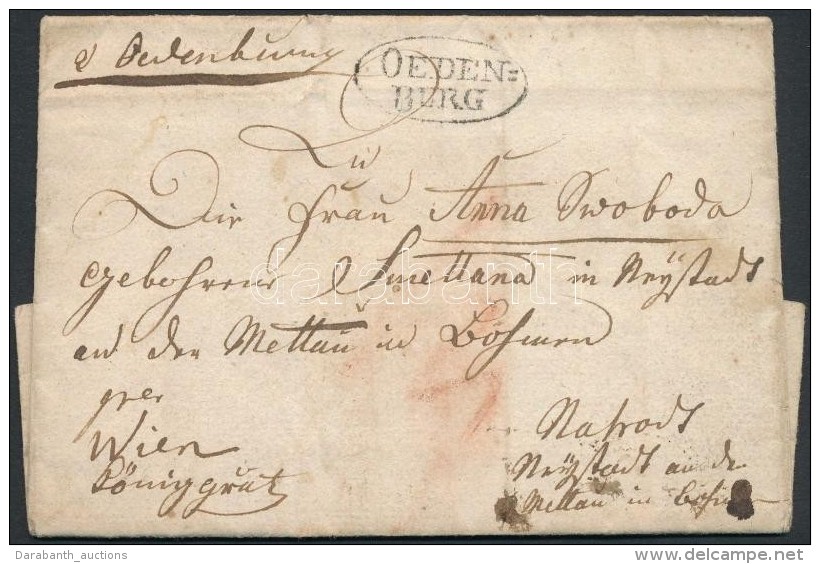 d Oedenburg
OEDEN=
BURG
Zu
Die Frau Anna Swoboda
gebohrene Smettana in Neystadt
an der Mettau in Böhmen
per
Wien
Königgrätz
Neystadt an der
Mettau in Böhmen
darabanth
Darabanth_auctions
www.delcampe.net